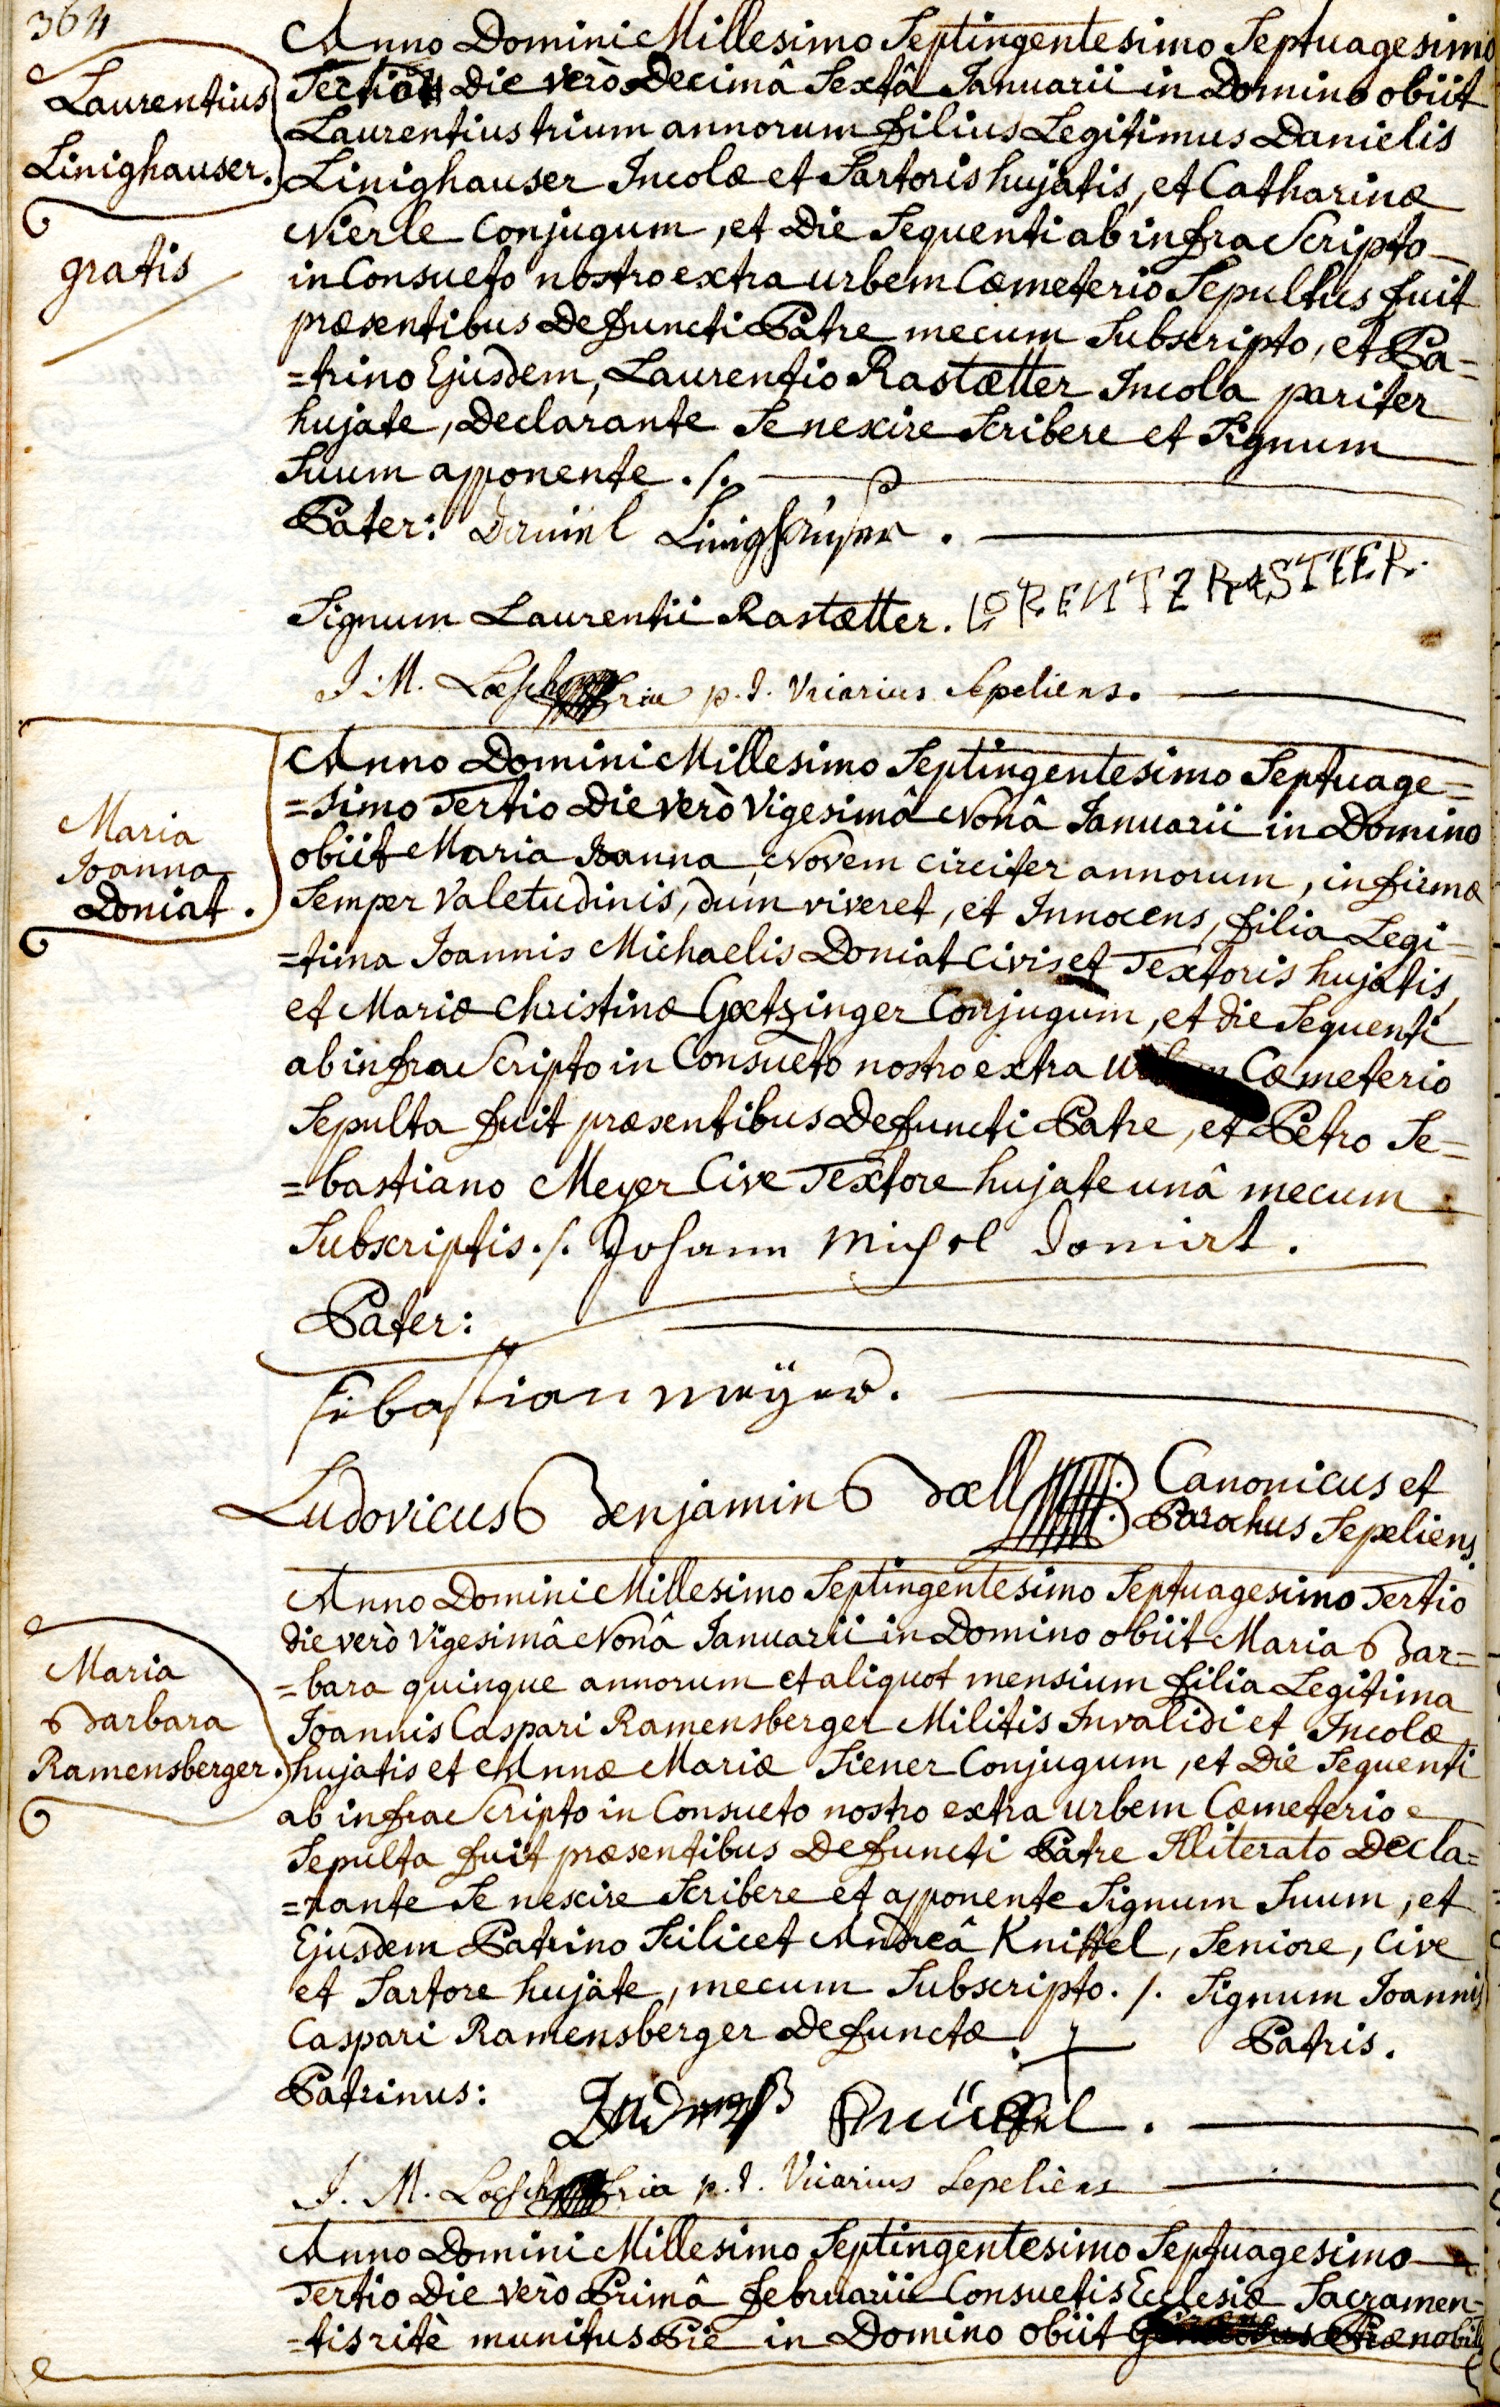 364
Laurentius
Linighauser.
gratis
Anno Domini Millesimo Septingentesimo Septuagesimo
Tertio Die verò Decimâ Sextâ Januarii in Domino obiit
Laurentius trium annorum filius Legitimus Danielis
Linighauser Incolæ et Sartoris hujatis, et Catharinæ
Nierle Conjugum, et Die Sequenti ab infra Scripto
in Consueto nostro extra urbem Cœmeterio Sepultus fuit
præsentibus Defuncti Patre mecum Subscripto, et Pa=
=trino Ejusdem, Laurentio Rastætter Incola pariter
hujate, Declarante Se nescire Scribere et Signum
Suum apponente ./.
Pater: Daniel Linighauser.
Signum Laurentii Rastætter. LORENTZ RASTTER.
J. M. p. t. Vicarius Sepeliens.
Maria
Joanna
Doniat.
Anno Domini Millesimo Septingentesimo Septuage=
=simo Tertio Die verò Vigesimâ Nonâ Januarii in Domino
obiit Maria Joanna, Novem circiter annorum, infirmæ
Semper Valetudinis, dum viveret, et Innocens, filia Legi=
=tima Joannis Michaelis Doniat Civis et Textoris hujatis,
et Mariæ Christinæ Gœtzinger Conjugum, et die Sequenti
ab infra Scripto in Consueto nostro extra urbem Cœmeterio
Sepulta fuit præsentibus Defuncti Patre, et Petro Se=
=bastiano Meyer Cive Textore hujate unâ mecum
Subscriptis ./. Johann Michel Doniat.
Pater:
sebastian meÿer.
Ludovicus Benjamin Dœll Canonicus et
Parochus Sepeliens.
Maria
Barbara
Ramensberger.
Anno Domini Millesimo Septingentesimo Septuagesimo Tertio
die verò Vigesimâ Nonâ Januarii in Domino obiit Maria Bar=
=bara quinque annorum et aliquot mensium filia Legitima
Joannis Caspari Ramensberger Militis Invalidi et Incolæ
hujatis et Annæ Mariæ Siener Conjugum, et Die Sequenti
ab infra Scripto in Consueto nostro extra urbem Cœmeterio
Sepulta fuit præsentibus Defuncti Patre Illiterato Decla=
=rante Se nescire Scribere et apponente Signum Suum, et
Ejusdem Patrino Scilicet Andreâ Kniffel, Seniore, Cive
et Sartore hujate, mecum Subscripto ./. Signum Joannis
Caspari Ramensberger Defunctæ + Patris.
Patrinus: Andreas Knüffel.
J. M. p. t. Vicarius Sepeliens
Anno Domini Millesimo Septingentesimo Septuagesimo
Tertio Die verò Primâ februarii Consuetis Ecclesiæ Sacramen=
=tis ritè munitus Piè in Domino obiit Prænobilis